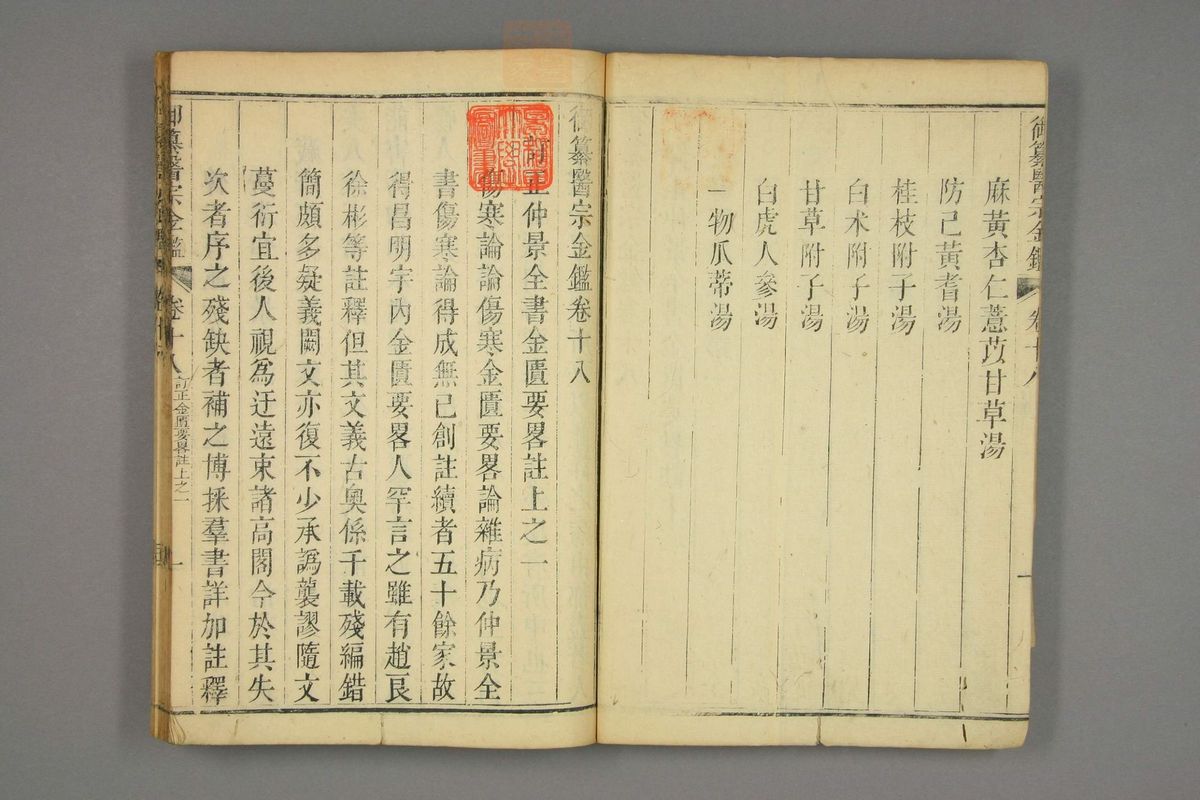 御纂醫宗金鑑
卷十八
麻黃杏仁薏苡甘草湯
防己黃耆湯
桂枝附子湯
白朮附子湯
甘草附子湯
白虎人參湯
一物瓜蒂湯
御纂醫宗金鑑卷十八
訂正仲景全書金匱要畧註上之一
傷寒論論傷寒金匱要畧論雜病乃仲景全
書傷寒論得成無己創註續者五十餘家故
得昌明宇內金匱要畧人罕言之雖有趙良
徐彬等註釋但其文義古奧係千載殘編錯
簡頗多疑義闕文亦復不少承譌襲謬隨文
蔓衍宜後人視為迂遠束諸高閣今於其失
次者序之殘缺者補之博採羣書詳加註釋
御纂醫宗金鑑
卷十八
訂正金匱要畧註上之一
一